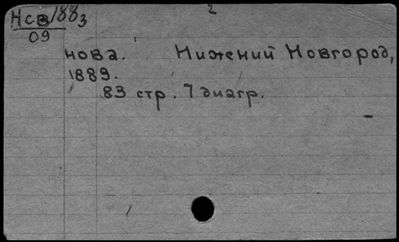 Нсв/1883
2
09
нова. Нижений Новгород,
1889.
83 стр. 7 диагр.